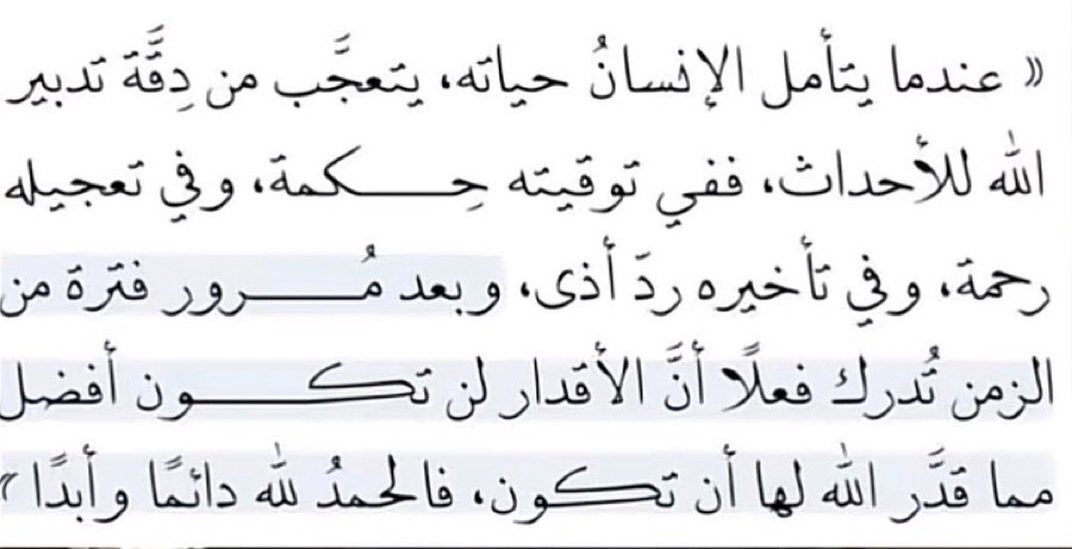 « عندما يتأمل الإنسانُ حياته، يتعجَّب من دِقَّة تدبير
الله للأحداث، ففي توقيته حِـــكمة، وفي تعجيله
رحمة، وفي تأخيره ردّ أذى، وبعد مُـــرور فترة من
الزمن تُدرك فعلًا أنَّ الأقدار لن تكـــون أفضل
مما قدَّر الله لها أن تكـون، فالحمدُ لله دائمًا وأبدًا »